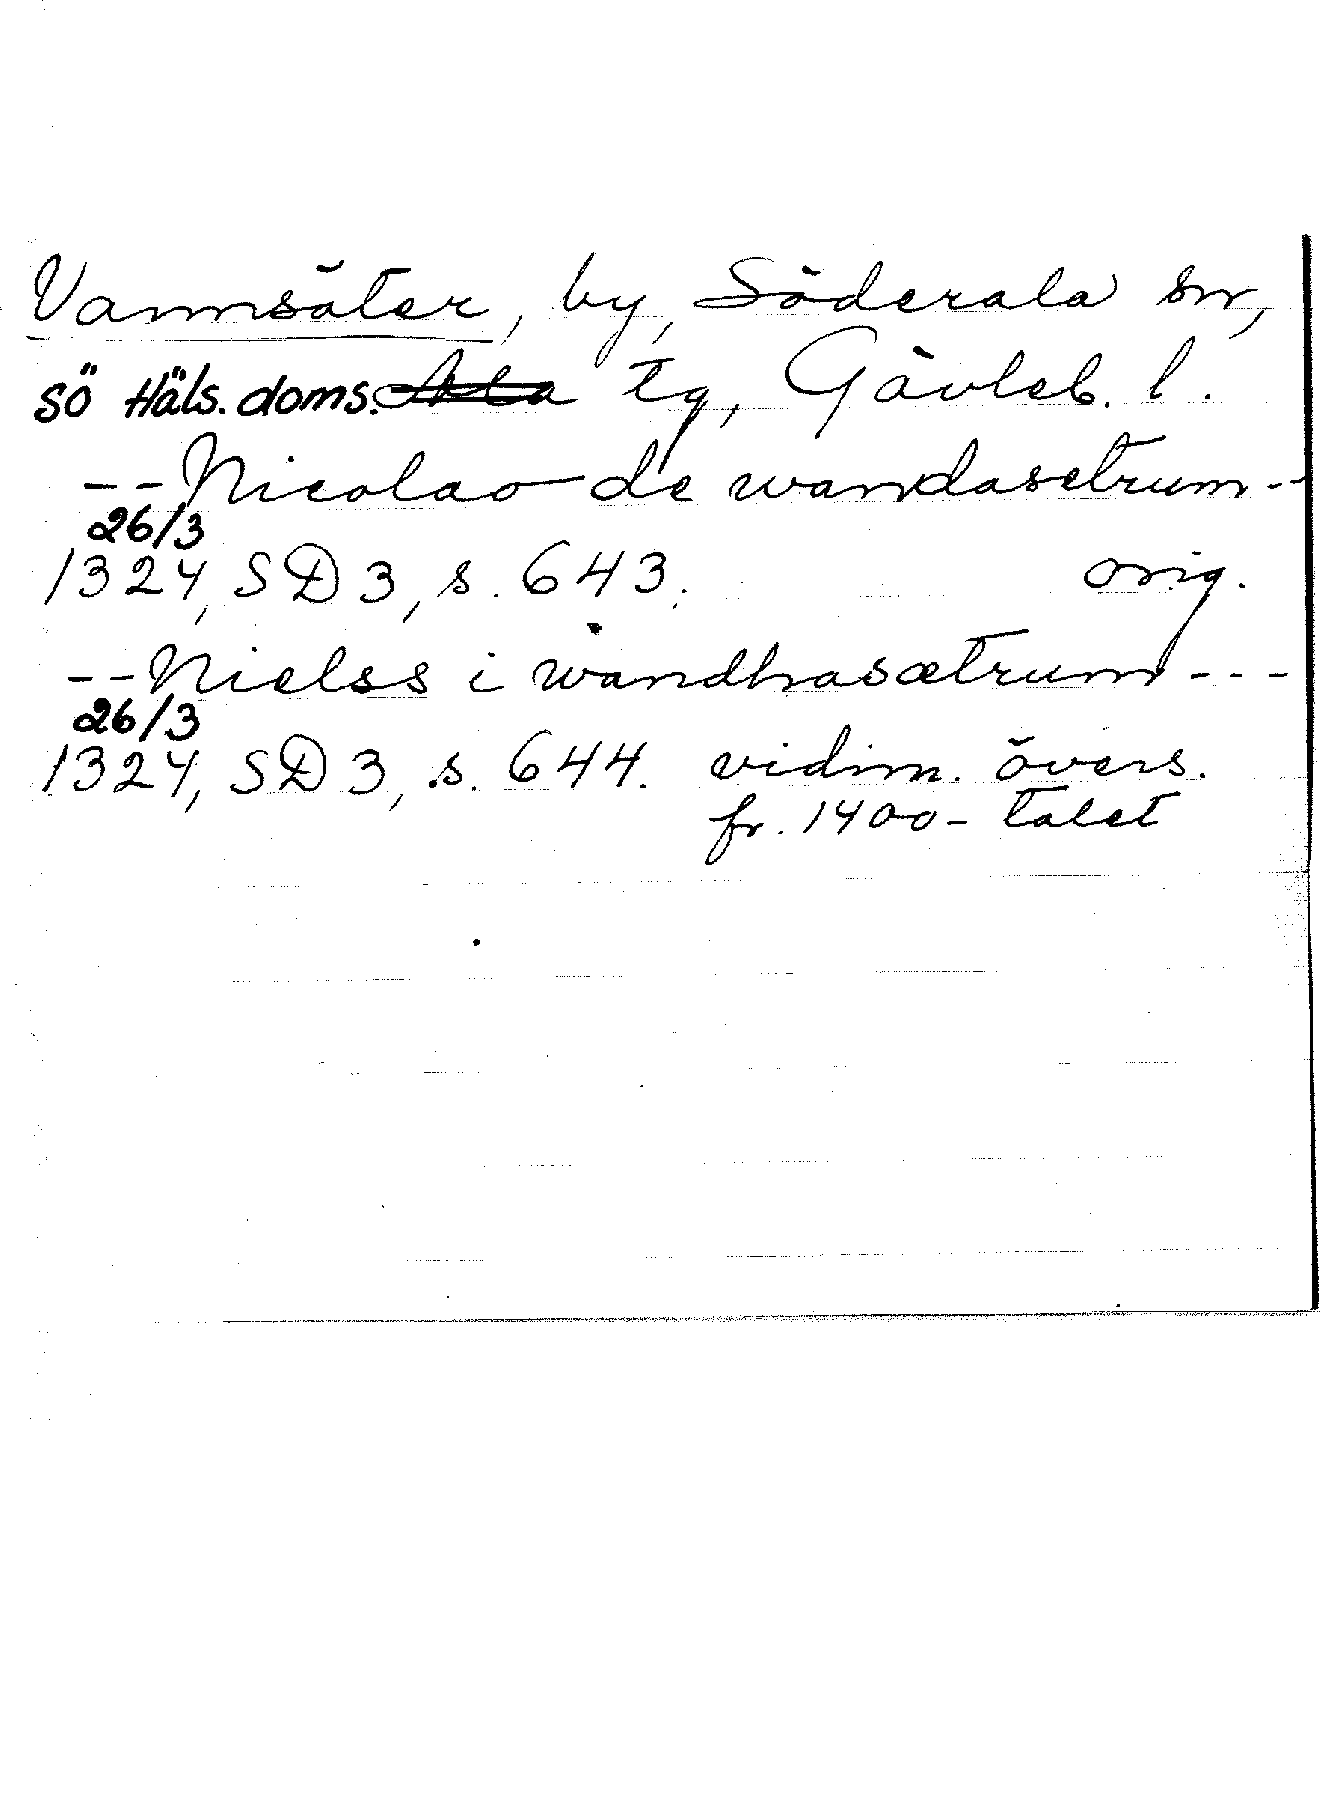 Vannsäter, by, Söderala sn,
sö Häls. doms. Ala tg, Gävleb. l.
-- Nicolao de wandasetrum --
26/3
1324, SD 3, s. 643. orig.
-- Nielss i wandhasætrum ---
26/3
1324, SD 3, s. 644. vidim. övers.
fr. 1400-talet